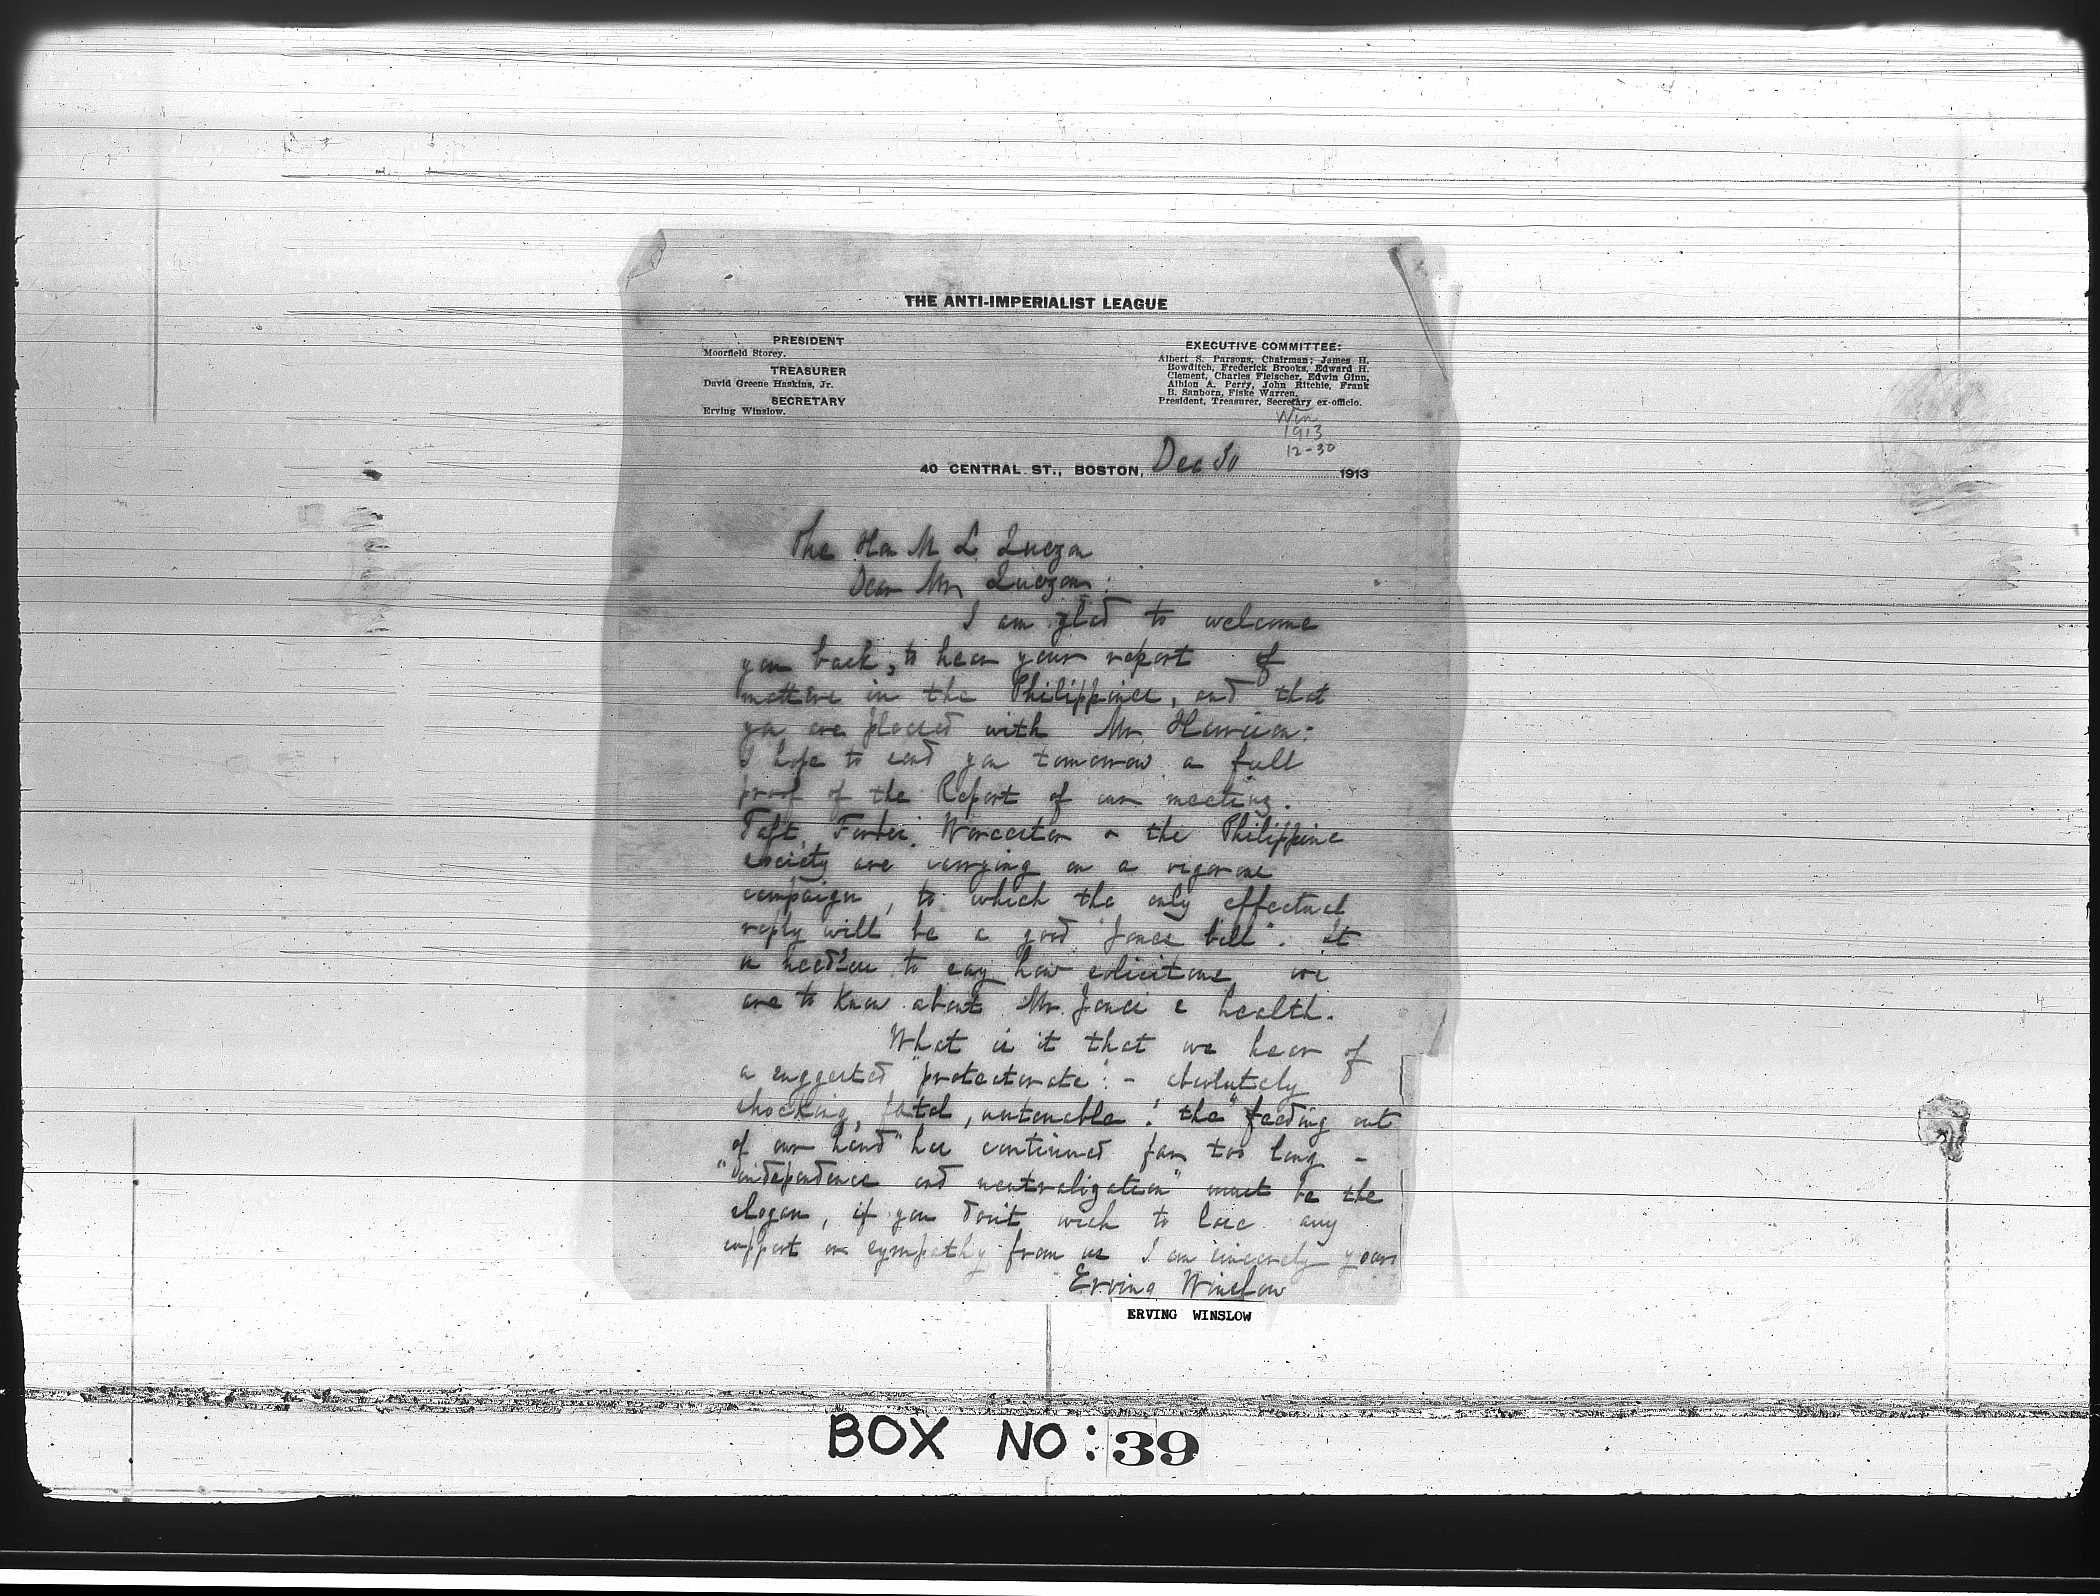 THE ANTI-IMPERIALIST LEAGUE
PRESIDENT
Moorfield Storey.
TREASURER
David Greene Haskins, Jr.
SECRETARY
Erving Winslow.
EXECUTIVE COMMITTEE:
Albert S. Parsons, Chairman; James H.
Bowditch, Frederick Brooks, Edward H.
Clement, Charles Fleischer, Edwin Ginn,
Albion A. Perry, John Ritchie, Frank
B. Sanborn, Fiske Warren,
President, Treasurer, Secretary ex-officio.
Win
1913
12-30
40 CENTRAL ST., BOSTON, Dec 30 1913
The Hon M L Quezon
Dear Mr Quezon:
I am glad to welcome
you back, to hear your report of
matters in the Philippines, and that
you are pleased with Mr Harrison:
I hope to send you tomorrow a full
proof of the Report of our meeting.
Taft, Forbes, Worcester & the Philippine
society are carrying on a vigorous
campaign, to which the only effectual
reply will be a good "Jones bill". It
is needless to say how solicitous we
are to know about Mr Jones's health.
What is it that we hear of
a suggested "protectorate": - absolutely
shocking, fatal, untenable! the "feeding out
of our hand" has continued far too long -
"independence and neutralization" must be the
slogan, if you don't wish to lose any
support or sympathy from us I am sincerely yours
Erving Winslow
ERVING WINSLOW
BOX NO: 39